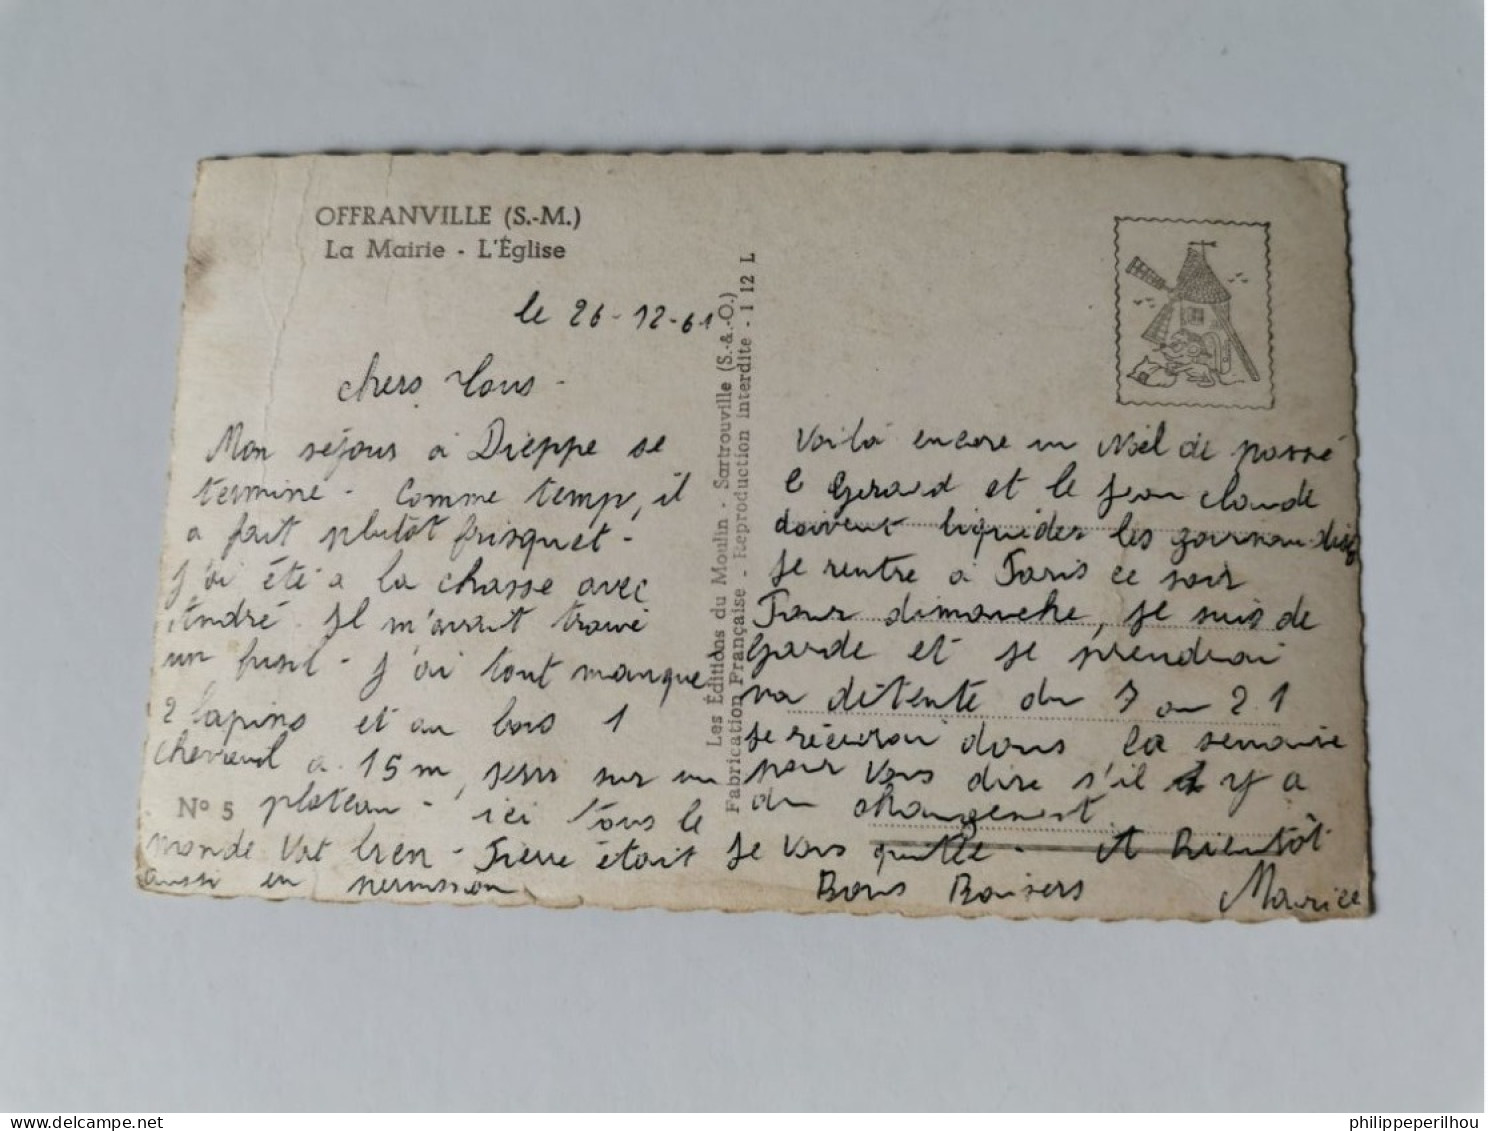 OFFRANVILLE (S.-M.)
La Mairie - L'Église
le 26-12-61
chers Tous -
Mon séjour à Dieppe se
termine - Comme temp, il
a fait plutôt frisquet -
J'ai été a la chasse avec
André. Il m'avait trouvé
un fusil - J'ai tout manqué
2 lapins et au bois 1
chevreuil a 15m, sur un
N° 5 plateau - ici tous le
monde Vat bien - Pierre était
aussi en permission
Les Éditions du Moulin - Sartrouville (S.-&-O.)
Fabrication Française - Reproduction interdite - 1 12 L
Voilà encore un Noël de passé
le Gerard et le Jean claude
doivent liquider les
Je rentre a Paris ce soir
Pour dimanche, je suis de
Garde et je prendrai
ma détente du 7 au 21
Je récrirai dans la semaine
pour Vous dire s'il y a
du changement.
Je Vous quitte - A Bientôt
Bons Baisers Maurice
philippeperilhou